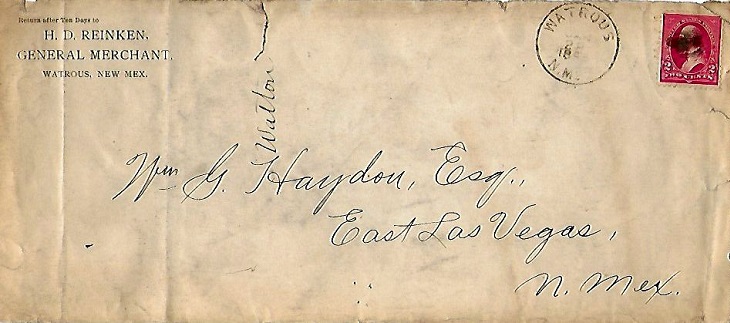 Return after Ten Days to
H. D. REINKEN,
GENERAL MERCHANT,
WATROUS, NEW MEX.
Walton
WATROUS
N.M.
2 2
TWO CENTS
Wm G. Haydon, Esq.,
East Las Vegas,
N. Mex.